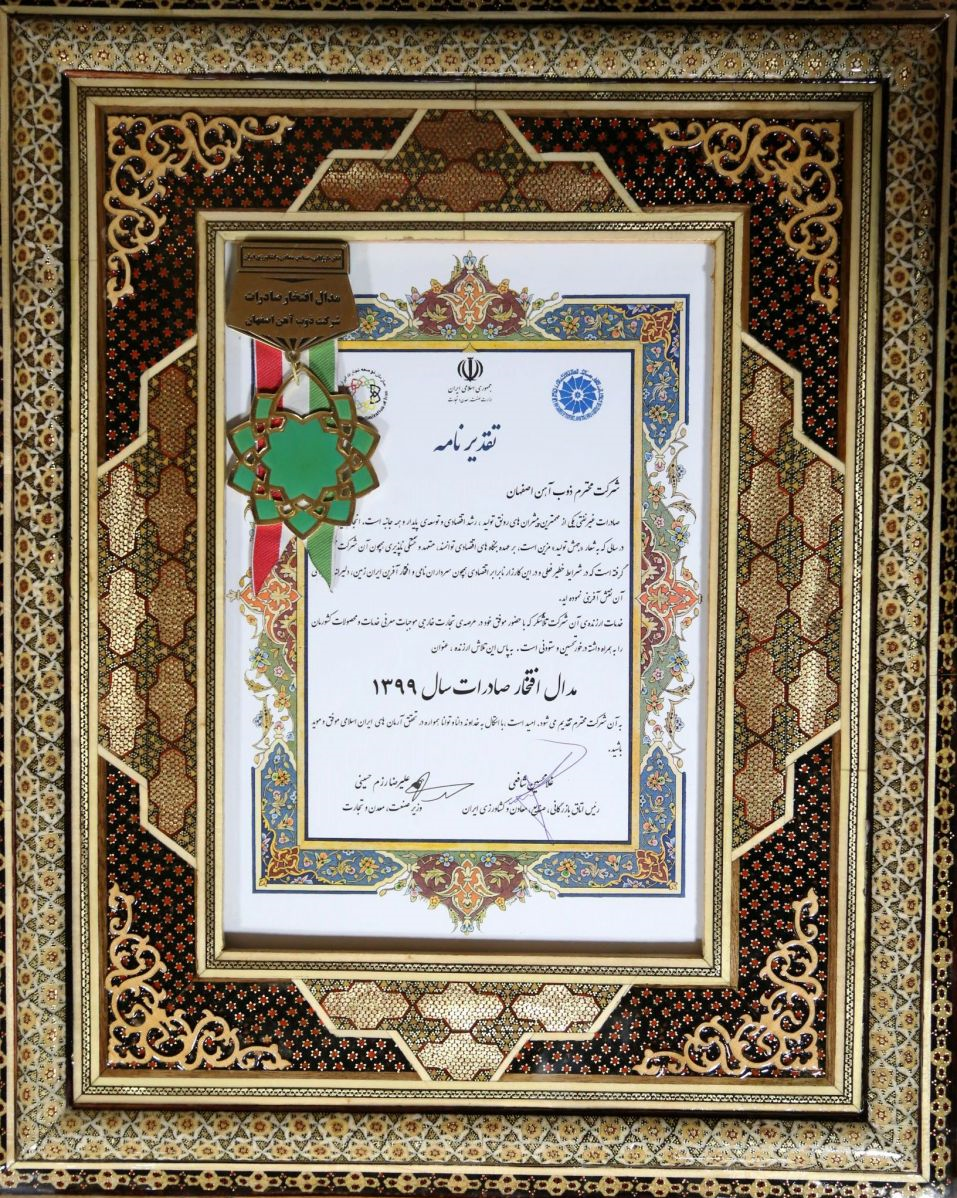 مدال افتخار صادرات
شرکت ذوب آهن اصفهان
جمهوری اسلامی ایران
وزارت صنعت، معدن و تجارت
تقدیر نامه
شرکت محترم ذوب آهن اصفهان
صادرات غیرنفتی یکی از مهمترین پیشران های رونق تولید ، رشد اقتصادی و توسعه ی پایدار و همه جانبه است.
در سالی که به شعار «جهش تولید» مزین است، بر عهده بنگاه های اقتصادی توانمند، متعهد و خستگی ناپذیری همچون آن شرکت
گرفته است که در شرایط خطیر فعلی و در این کارزار نابرابر اقتصادی همچون سرداران نامی و افتخار آفرین ایران زمین،
آن نقش آفرینی نموده اید.
خدمات ارزنده ی آن شرکت که با حضور موفق خود در عرصه ی تجارت خارجی موجبات معرفی خدمات و محصولات کشورمان
را به همراه داشته درخور تحسین و ستودنی است. به پاس این تلاش ارزنده ، عنوان
مدال افتخار صادرات سال ۱۳۹۹
به آن شرکت محترم تقدیم می شود. امید است با اتکال به خداوند دانا و توانا همواره در تحقق آرمان های ایران اسلامی موفق و موید
باشید.
غلامحسین شافعی
رئیس اتاق بازرگانی، صنایع، معادن و کشاورزی ایران
علیرضا رزم حسینی
وزیر صنعت، معدن و تجارت